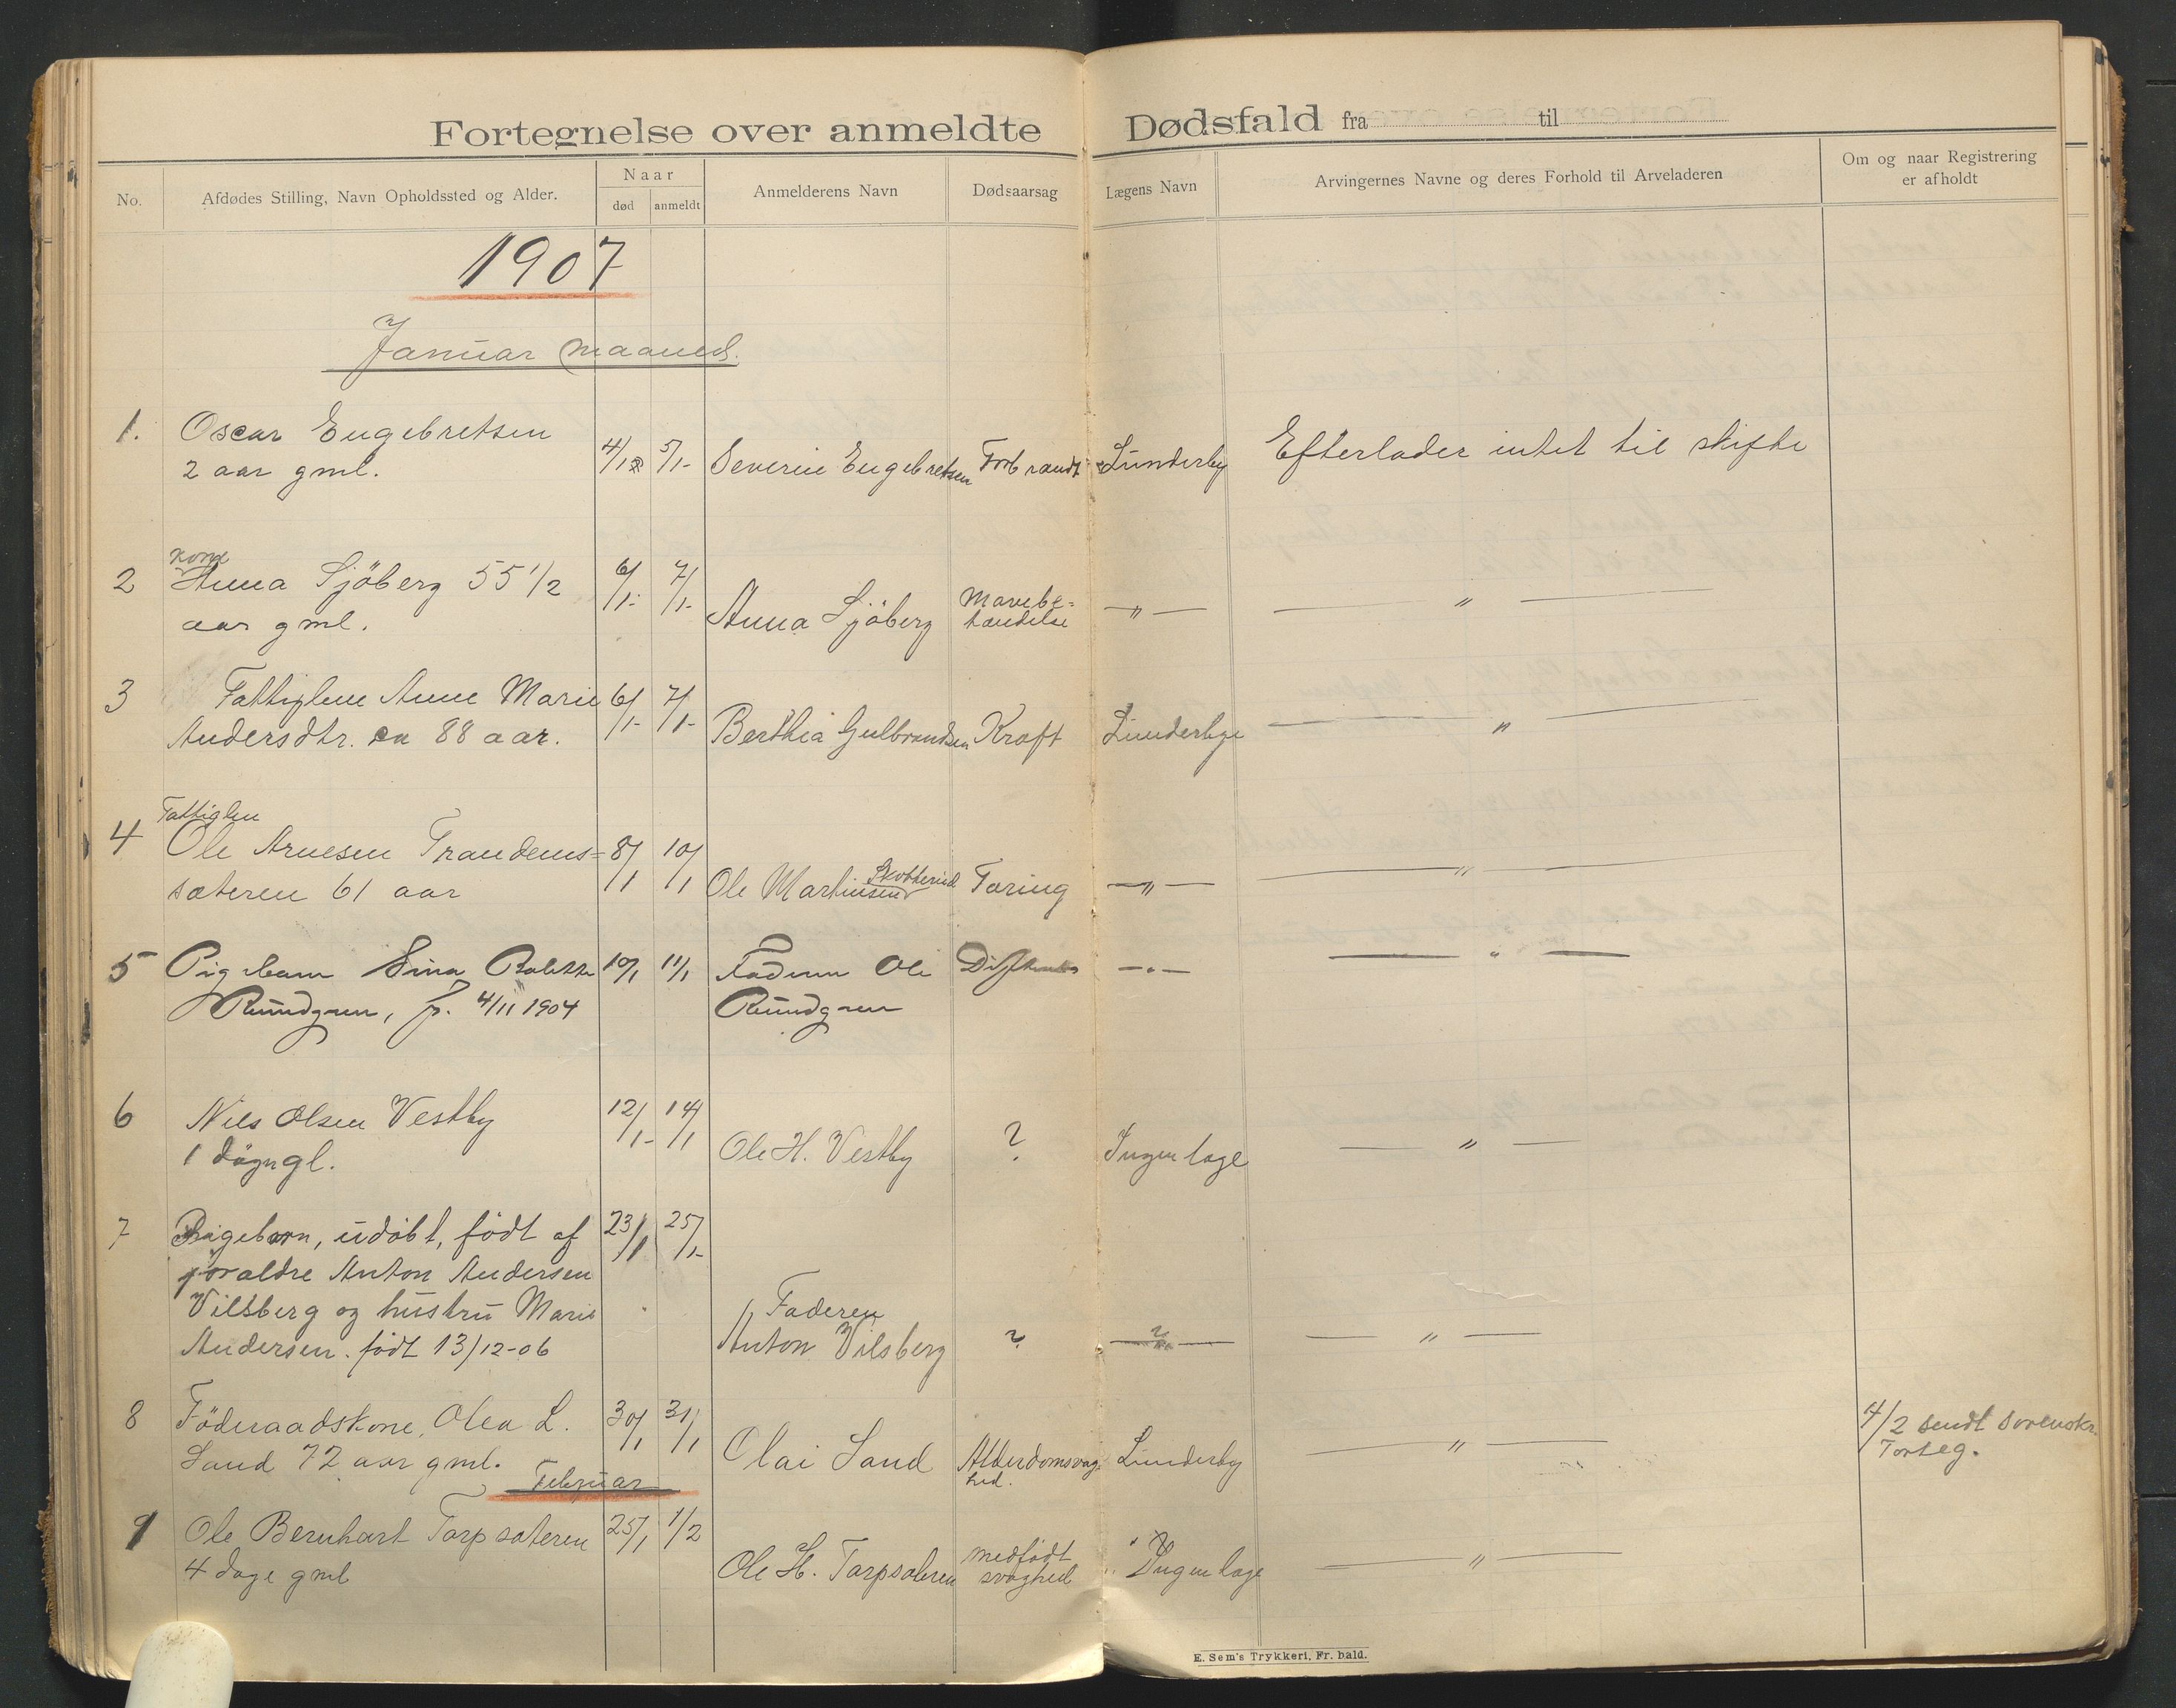 Fortegnelse over anmeldte Dødsfald fra til
No.
Afdødes Stilling, Navn Opholdssted og Alder.
Naar
død
anmeldt
Anmelderens Navn
Dødsaarsag
Lægens Navn
Arvingernes Navne og deres Forhold til Arveladeren
Om og naar Registrering
er afholdt
1907
Januar maaned.
1. Oscar Engebretsen
2 aar gml.
4/1 5/1- Severin Engebretsen Forbrændt Lunderby Efterlader intet til skifte
2 kone
Anna Sjöberg 55 1/2
aar gml.
6/1- 7/1- Anna Sjöberg Mavebe=
tændelse
—"— — " —
3 Fattiglem Anne Marie
Andersdtr. ca 88 aar.
6/1- 7/1- Berthia Gulbrandsen Kræft Lunderbye — " —
4 Fattiglem
Ole Arnesen Trandems=
sæteren 61 aar
8/1 10/1 Ole Martinsen Skotterud Tæring —"— — " —
5 Pigebarn Sina Bolette
Rundgren, f. 4/11 1904
10/1 11/1 Faderen Ole
Rundgren
—"— — " —
6 Nils Olsen Vestby
1 døgn gl.
12/1- 14/1 Ole H. Vestby ? Ingen læge — " —
7 Pigebarn, udøbt, født af
foraldre Anton Andersen
Vilsberg og hustru Marie
Andersen. født 13/12-06
23/1 25/1- Faderen
Anton Vilsberg ? — " —
8 Föderaadskone, Olea L.
Sand 72 aar gml.
30/1 31/1 Olai Sand Alderdomsvag
hed.
Lunderby — " —
4/2 sendt sorenskr.
Forteg.
Februar
9 Ole Bernhart Torpsæteren
4 dage gml
25/1 1/2 Ole H. Torpsæteren medfødt
svaghed
Ingen læge — " —
E. Sem's Trykkeri, Fr. hald.